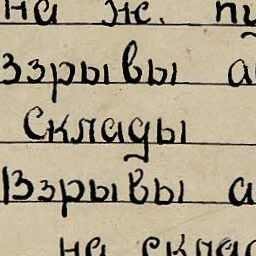 на ж. пу
Взрывы а
Склады
Взрывы а
на склад